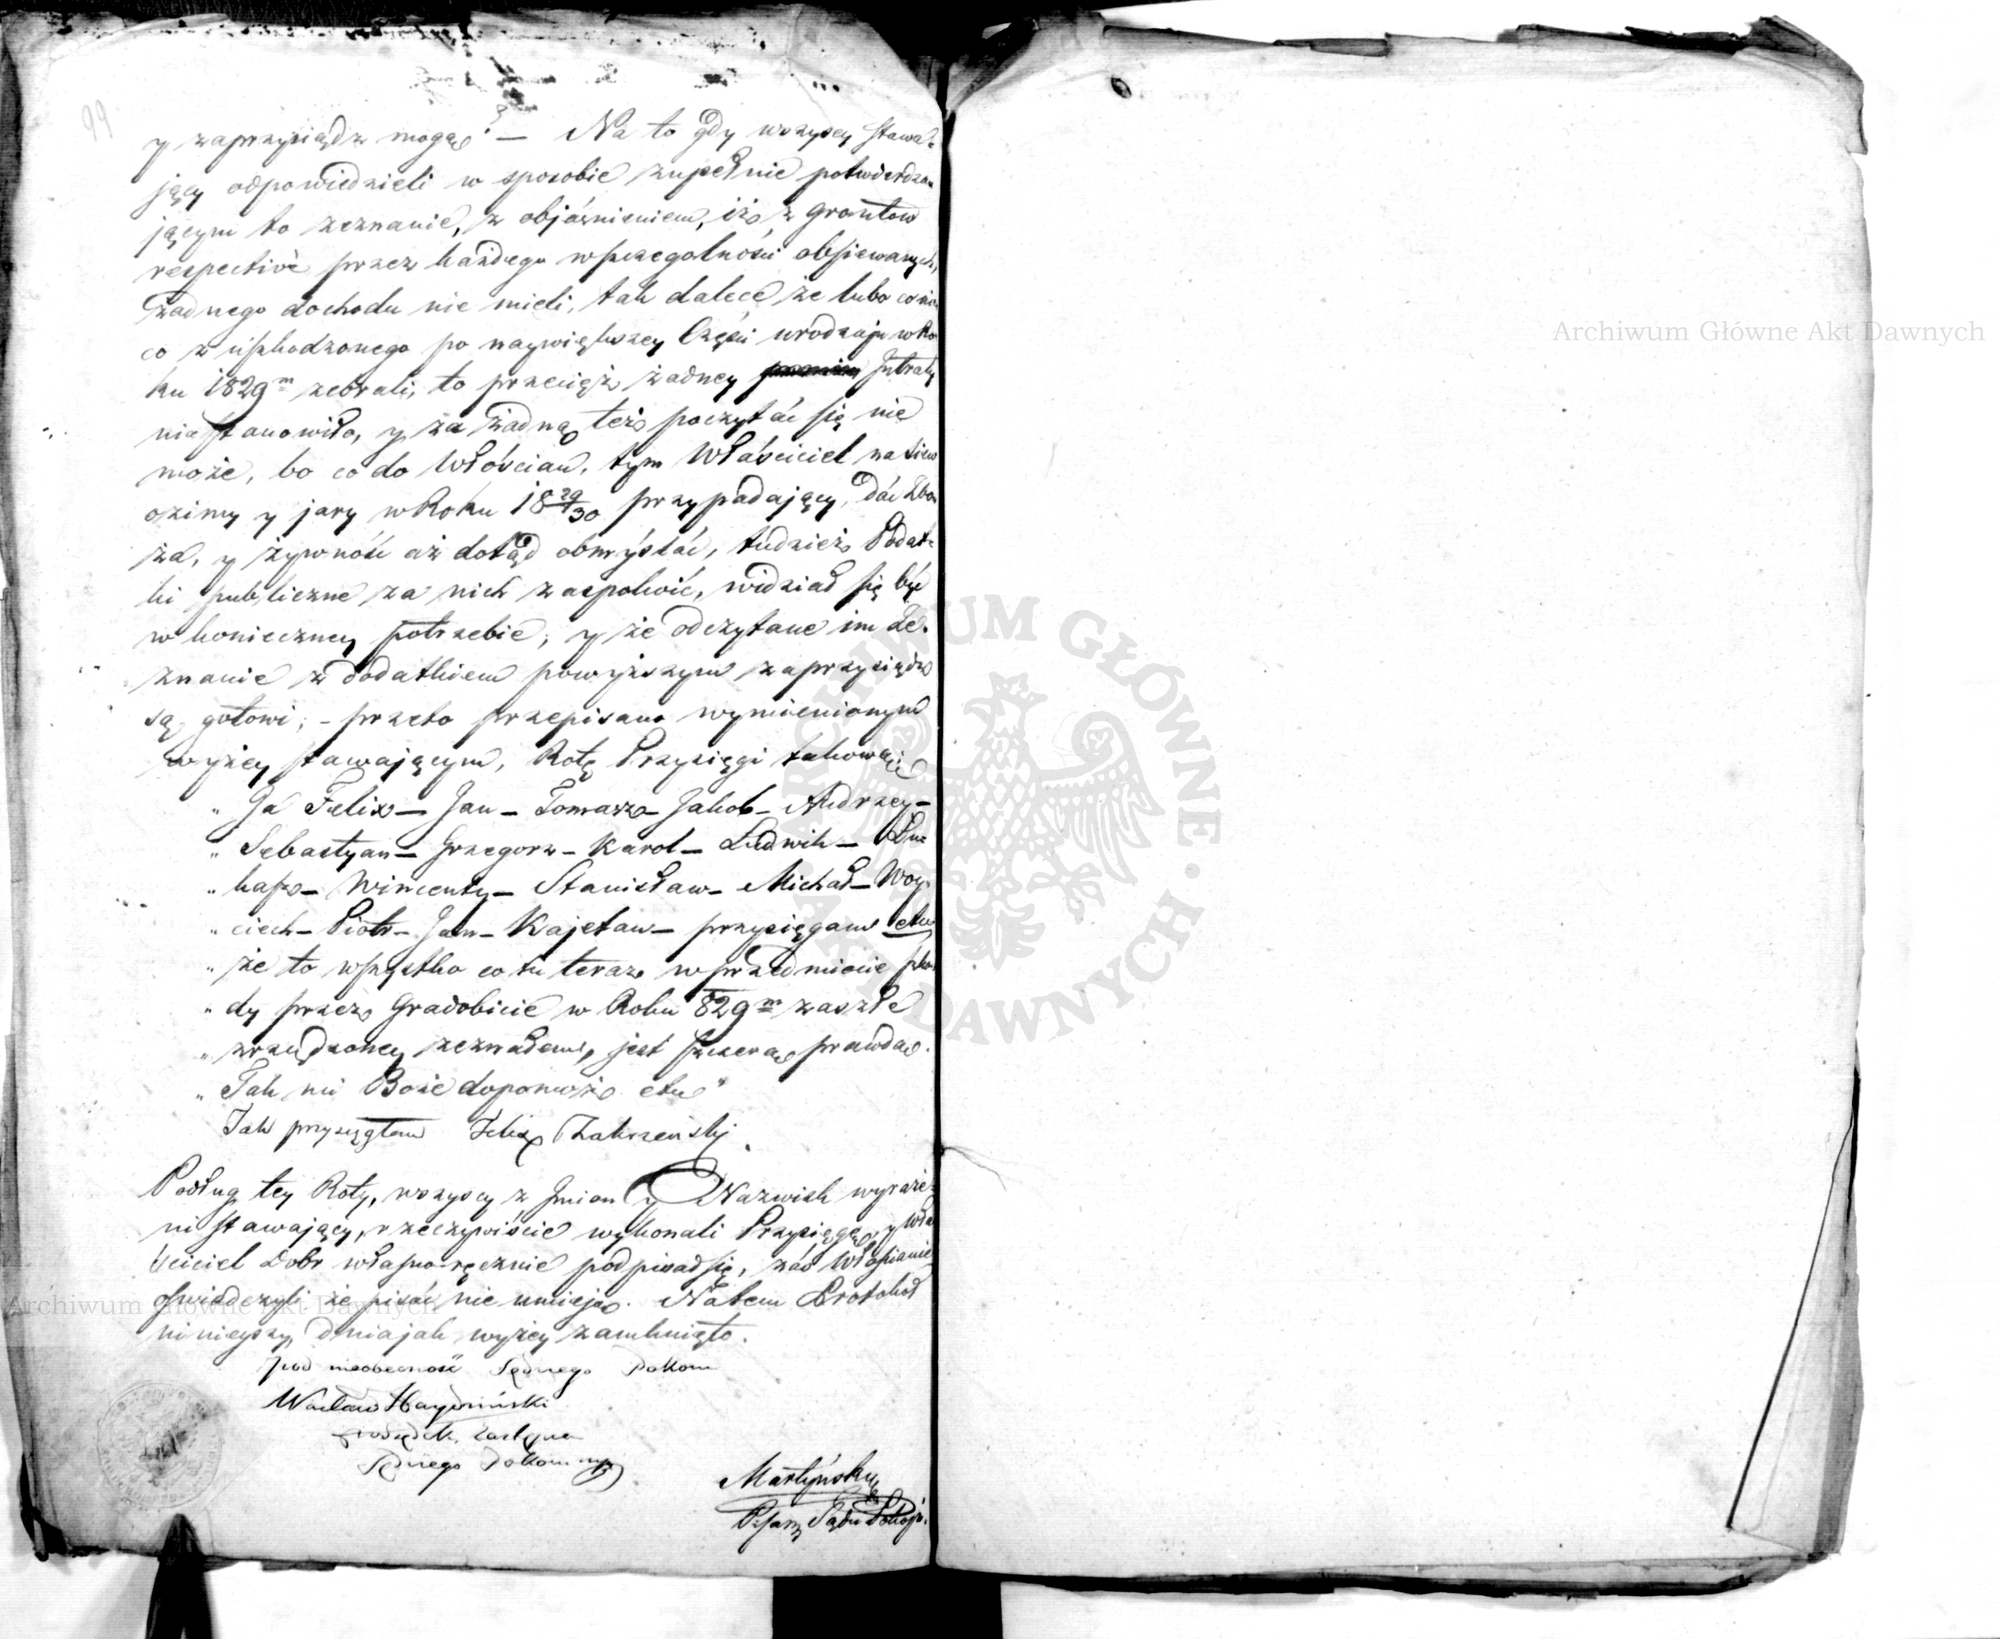 99
y zaprzysiądz mogą? — Na to gdy wszyscy stawa-
jący odpowiedzieli w sposobie zupełnie potwierdza-
jącym to zeznanie, z objaśnieniem, iż z Grontow
respectivè przez każdego wszczegolności obsiewanych,
żadnego dochodu nie mieli, tak dalecè że lubo
co z uszkodzonego po naywiększey Części urodzaju w Ro-
ku 1829m zebrali, to przecięż żadney Intraty
niestanowiło, y za żadną też poczytać się nie
może, bo co do Włościan, tym Właściciel na siew
ozimy y jary w Roku 18 29/30 przypadający, dać Zbo-
ża, y żywność aż dotąd obmyślać, tudzież Podat-
ki publiczne za nich zaspokoić, widział się być
w konieczney potrzebie; y że odczytane im Ze-
znanie z dodatkiem powyższym zaprzysiądz
są gotowi; – przeto przepisano wymienionym
wyżey stawającym, Rotę Przysięgi takową:
„ Ja Felix — Jan — Tomasz — Jakob — Andrzey —
„ Sebastyan — Grzegorz — Karol — Ludwik — Łu-
„ kasz — Wincenty — Stanisław — Michał — Woy-
„ ciech — Piotr — Jan — Kajetan — przysięgam etc
„ że to wszystko co tu teraz w przedmiocie szko-
„ dy przez Gradobicie w Roku 829m zaszłe
„ zrządzoney zeznałem, jest szczerą prawdą.
„ Tak mi Boże dopomoż etc"
Jak przysięgłem Felix Zakrzeński
Podług tey Roty, wszyscy z Imion y Nazwisk wyraże-
ni stawający, rzeczywiście wykonali Przysięgę, y Wła-
ściciel Dobr własnoręcznie podpisał się, zaś Włościanie
oświadczyli że pisać nie umieją. Natem Protokół
ninieyszy, dnia jak wyżey zamknięto.
pod nieobecność Sędziego Pokoiu
Wacław
Podsędek Zastępca
Sędziego Pokoiu
Martyński
Pisarz Sądu Pokoju.
Archiwum Główne Akt Dawnych
Archiwum Główne Akt Dawnych
ARCHIWUM GŁÓWNE · AKT DAWNYCH ·